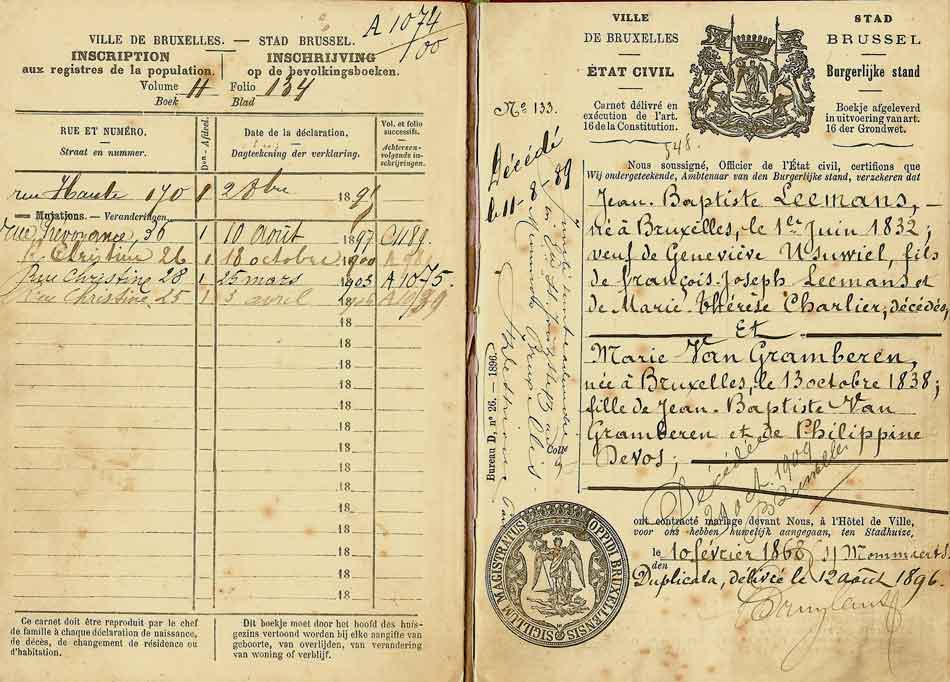 VILLE DE BRUXELLES. — STAD BRUSSEL.
A 1074/00
INSCRIPTION
aux registres de la population.
INSCHRIJVING
op de bevolkingsboeken.
Volume H Folio 134
Boek Blad
RUE ET NUMÉRO.
Straat en nummer.
Don - Afdeel.
Date de la déclaration.
Dagteekening der verklaring.
Vol. et folio successifs.
Achtereenvolgende inschrijvingen.
rue Haute 170 1 2 8bre 189
Mutations. — Veranderingen.
rue 36 1 10 août 1897 C1189
Christine 26 1 18 octobre 1900
Rue Christine 28 1 25 mars 1903 A1075.
Rue Christine 25 1 3 avril
18
18
18
18
18
18
18
18
18
18
18
18
18
18
Ce carnet doit être reproduit par le chef
de famille à chaque déclaration de naissance,
de décès, de changement de résidence ou
d'habitation.
Dit boekje moet door het hoofd des huisgezins
vertoond worden bij elke aangifte van
geboorte, van overlijden, van verandering
van woning of verblijf.
VILLE
DE BRUXELLES
ÉTAT CIVIL
Carnet délivré en
exécution de l'art.
16 de la Constitution.
STAD
BRUSSEL
Burgerlijke stand
Boekje afgeleverd
in uitvoering van art.
16 der Grondwet.
No 133.
548.
Nous soussigné, Officier de l'État civil, certifions que
Wij ondergeteekende, Ambtenaar van den Burgerlijke stand, verzekeren dat
Jean-Baptiste Leemans,
né à Bruxelles, le 1er Juin 1832;
veuf de Geneviève Usuwiel, fils
de François-Joseph Leemans et
de Marie-Thérèse Charlier, décédés,
ET
Marie Van Gramberen,
née à Bruxelles, le 13 octobre 1838;
fille de Jean-Baptiste Van
Gramberen et de Philippine
Devos;
Décédée
1909
ont contracté mariage devant Nous, à l'Hôtel de Ville,
voor ons hebben huwelijk aangegaan, ten Stadhuize,
le 10 février 1868 s/ Mommaerts
den
Duplicata, délivré le 12 août 1896.
Décédé
le 11-8-89
Bureau D, no 26. — 1896.
SIGILLUM MAGISTRATUS OPPIDI BRUXELLENSIS